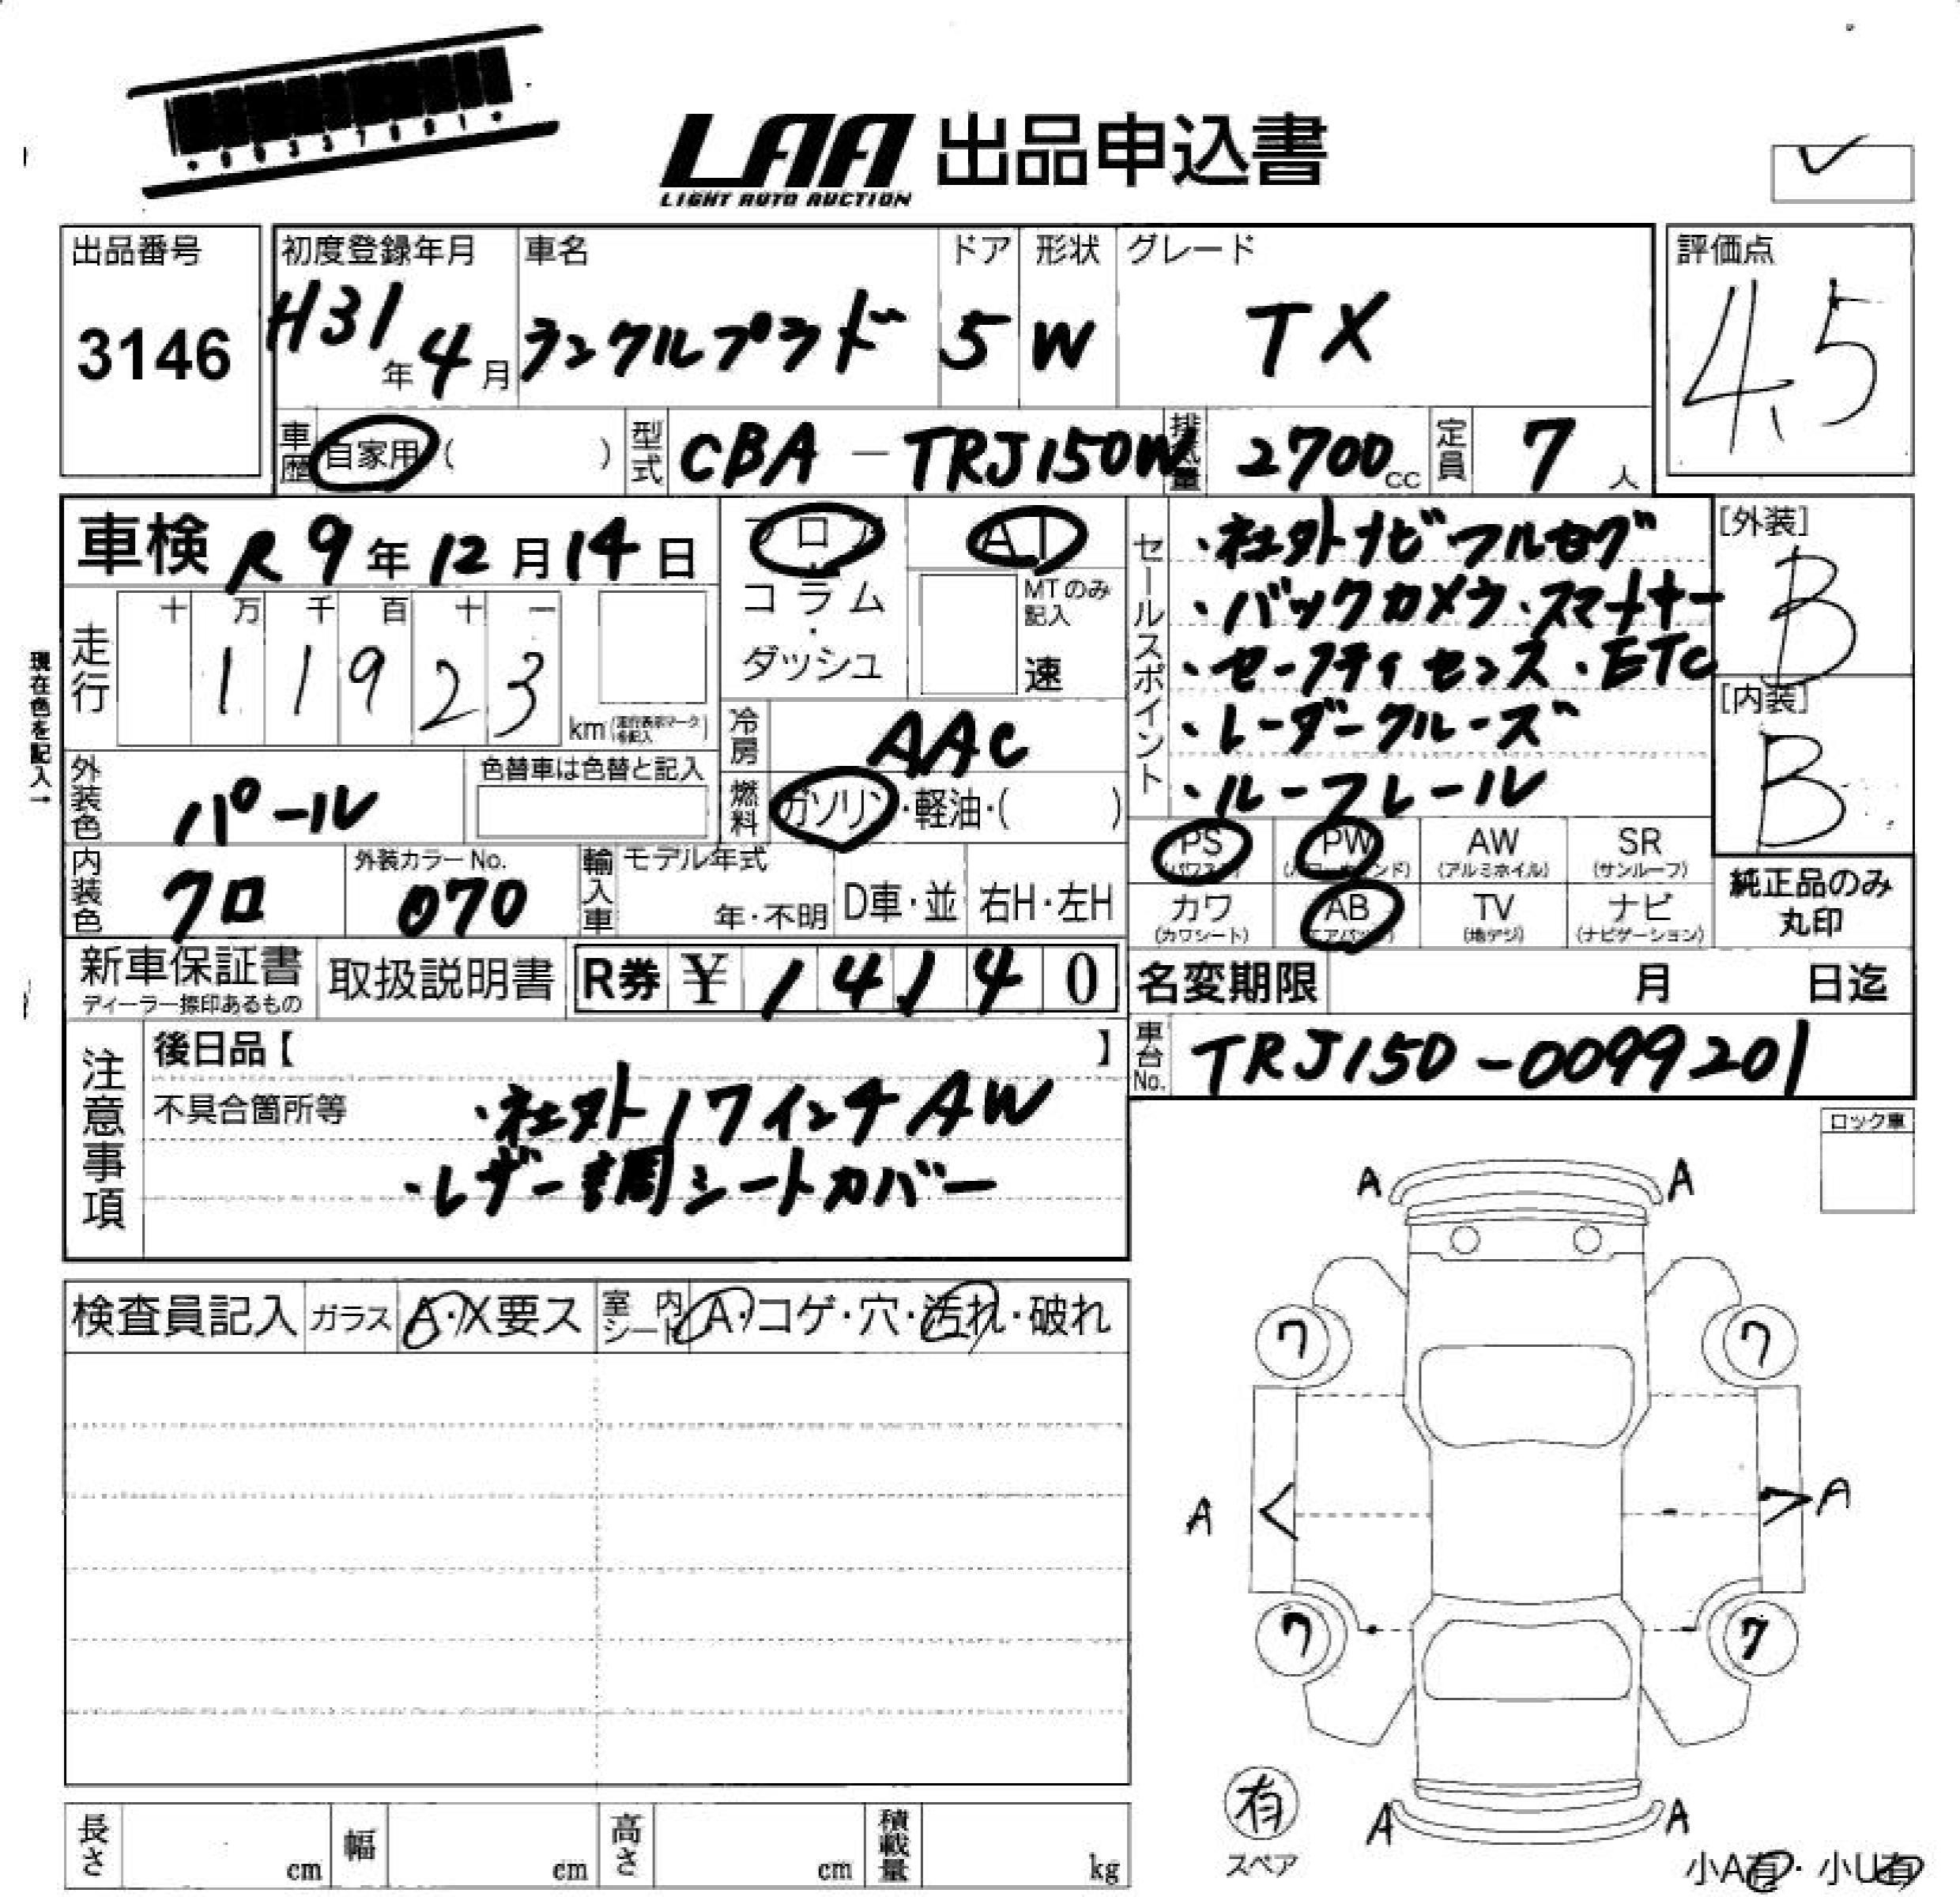 LAA 出品申込書
LIGHT AUTO AUCTION
出品番号
3146
初度登録年月
H31年4月
車名
ランクルプラド
ドア
5
形状
W
グレード
TX
評価点
4.5
車歴 自家用 ( )
型式 CBA-TRJ150W
排気量 2700cc
定員 7人
車検 R9年12月14日
フロア
コラム
ダッシュ
AT
MTのみ記入
速
走行
十 万 千 百 十 一
1 1 9 2 3
km (走行表示マークを記入)
現在色を記入→
外装色 パール
色替車は色替と記入
内装色 クロ
外装カラーNo.
070
冷房 AAC
燃料 ガソリン・軽油・( )
輸入車
モデル年式
年・不明
D車・並
右H・左H
セールスポイント
・社外ナビ フルセグ
・バックカメラ・スマートキー
・セーフティセンス・ETC
・レーダークルーズ
・ルーフレール
[外装]
B
[内装]
B
PS (パワステ)
PW (パワーウインド)
AW (アルミホイル)
SR (サンルーフ)
カワ (カワシート)
AB (エアバッグ)
TV (地デジ)
ナビ (ナビゲーション)
純正品のみ
丸印
新車保証書
ディーラー捺印あるもの
取扱説明書
R券 ¥14140
名変期限 月 日迄
車台No. TRJ150-0099201
注意事項
後日品【 】
不具合箇所等
・社外17インチAW
・レザー調シートカバー
検査員記入
ガラス A・X要ス
室内シート A・コゲ・穴・汚れ・破れ
長さ cm
幅 cm
高さ cm
積載量 kg
ロック車
A A
7 7
A < > A
7 7
A A
有
スペア
小A有・小U有